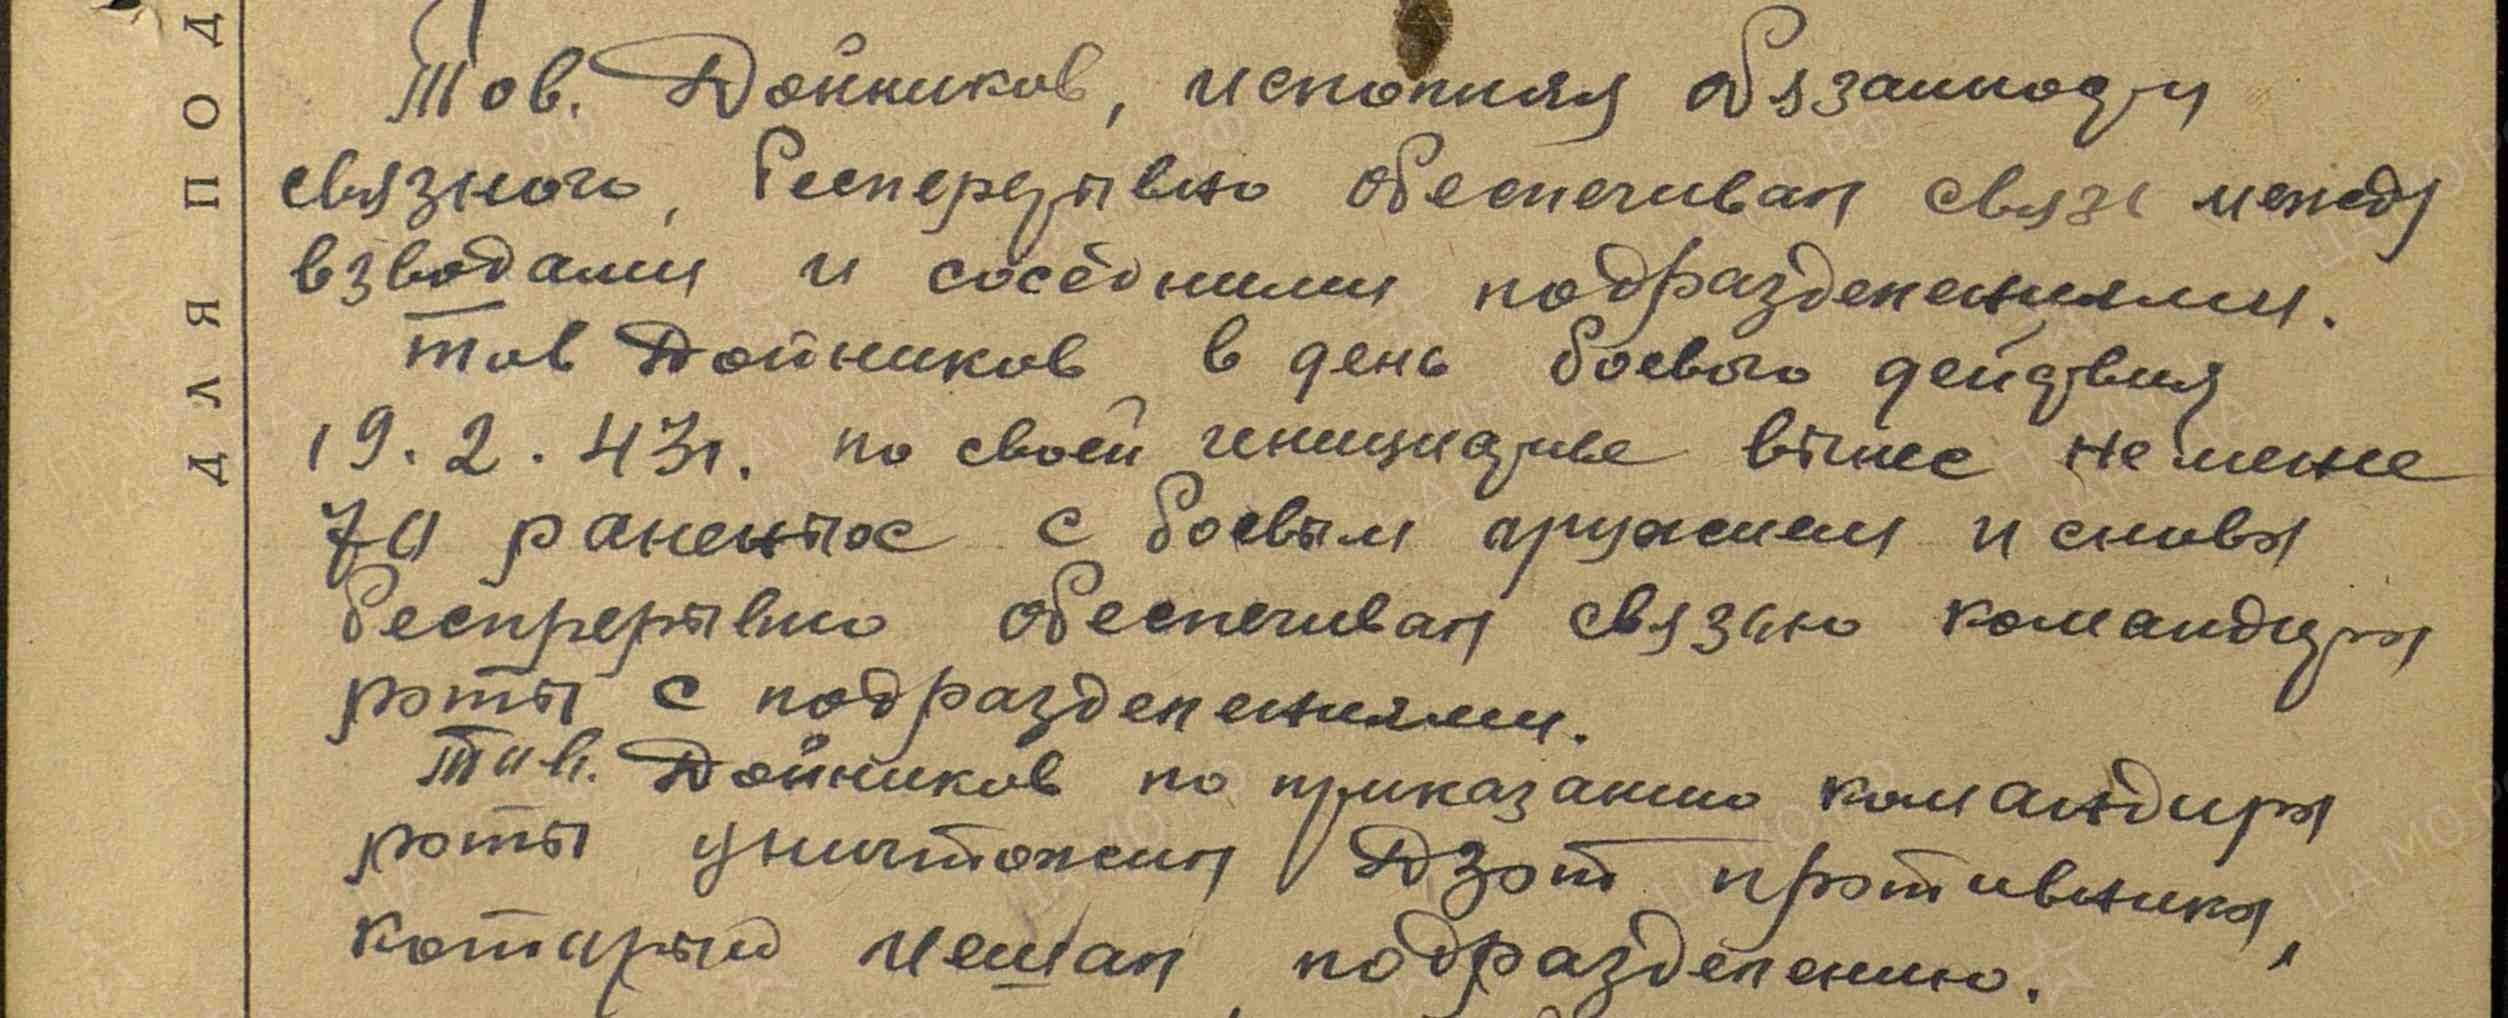 Тов. Дойников, исполняя обязанности
связного, бесперерывно обеспечивал связь между
взводами и соседними подразделениями.
Тов Дойников в день боевого действия
19.2.43г. по своей инициативе вынес не мене
70 раненых с боевым оружием и снова
беспрерывно обеспечивал связью командира
роты с подразделениями.
Тов. Дойников по приказанию командира
роты уничтожил Дзот противника,
который мешал подразделению.
ДЛЯ ПОД